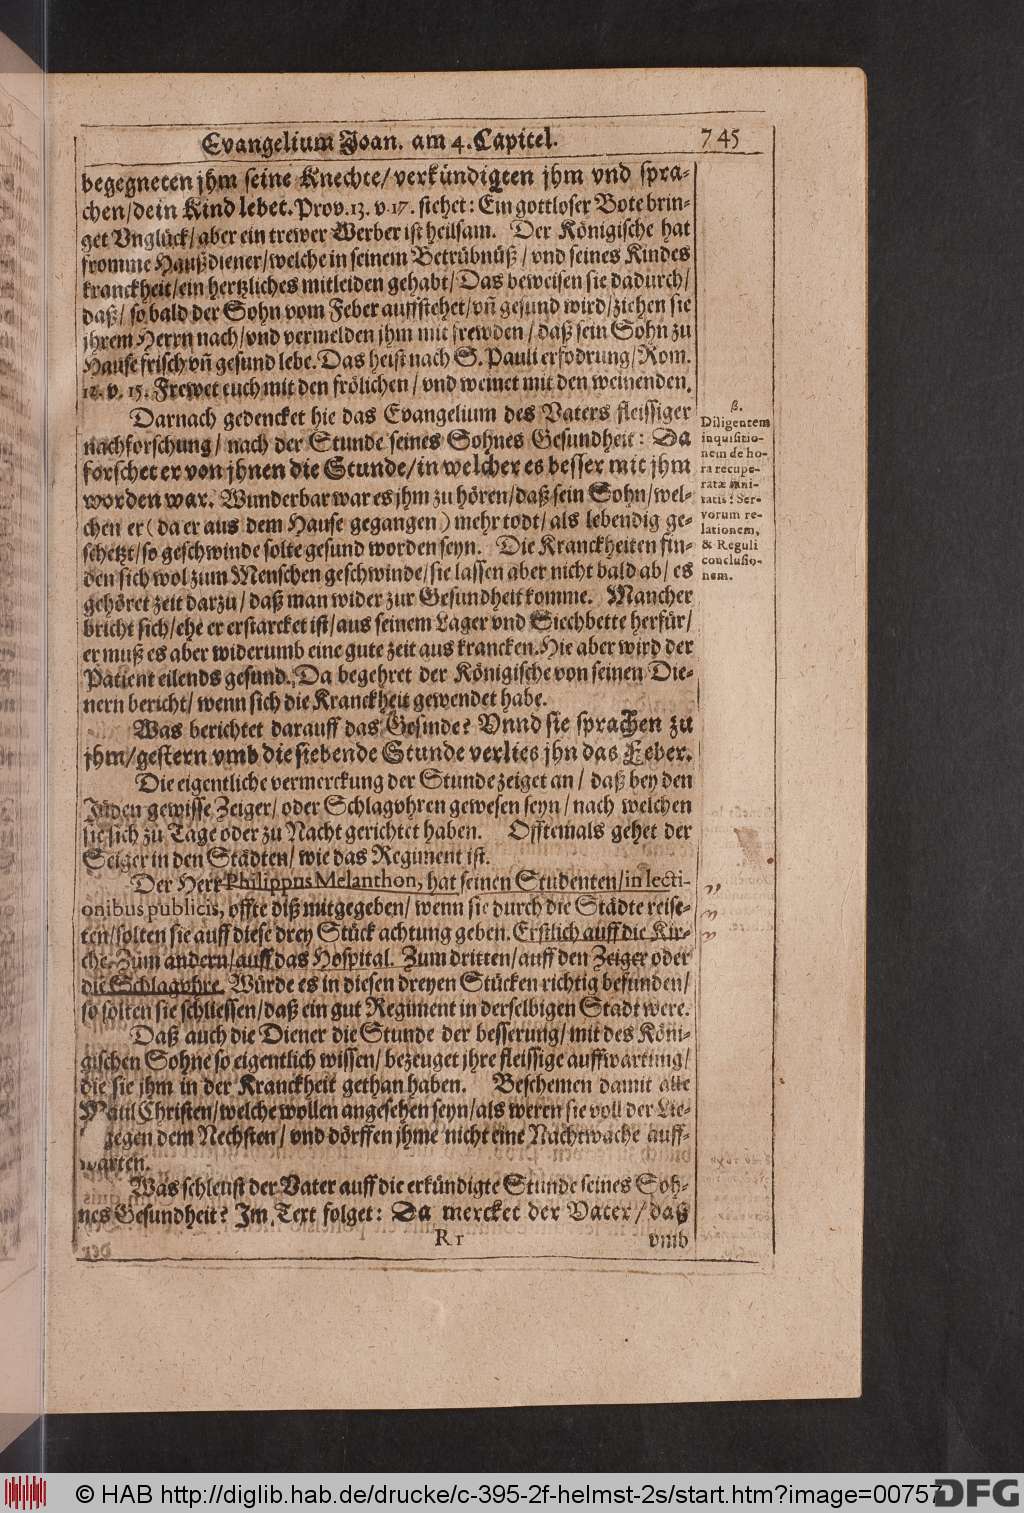 Evangelium Joan. am 4. Capitel. 745
begegneten jhm seine Knechte/ verkündigten jhm vnd spra-
chen/ dein Kind lebet. Prov. 13. v. 17. stehet: Ein gottloser Bote brin-
get Vnglück/ aber ein trewer Werber ist heilsam. Der Königische hat
fromme Haußdiener/ welche in seinem Betrübnüß/ vnd seines Kindes
kranckheit/ ein hertzliches mitleiden gehabt/ Das beweisen sie dadurch/
daß/ so bald der Sohn vom Feber auffstehet/ vñ gesund wird/ ziehen sie
jhrem Herrn nach/ vnd vermelden jhm mit frewden/ daß sein Sohn zu
Hause frisch vñ gesund lebe. Das heist nach S. Pauli erfodrung/ Rom.
12. v. 15. Frewet euch mit den frölichen/ vnd weinet mit den weinenden.
Darnach gedencket hie das Evangelium des Vaters fleissiger
nachforschung/ nach der Stunde seines Sohnes Gesundheit: Da
forschet er von jhnen die Stunde/ in welcher es besser mit jhm
worden war. Wunderbar war es jhm zu hören/ daß sein Sohn/ wel-
chen er (da er aus dem Hause gegangen) mehr todt/ als lebendig ge-
schetzt/ so geschwinde solte gesund worden seyn. Die Kranckheiten fin-
den sich wol zum Menschen geschwinde/ sie lassen aber nicht bald ab/ es
gehöret zeit darzu/ daß man wider zur Gesundheit komme. Mancher
bricht sich/ ehe er erstarcket ist/ aus seinem Lager vnd Siechbette herfür/
er muß es aber widerumb eine gute zeit aus krancken. Hie aber wird der
Patient eilends gesund. Da begehret der Königische von seinen Die-
nern bericht/ wenn sich die Kranckheit gewendet habe.
Was berichtet darauff das Gesinde? Vnnd sie sprachen zu
jhm/ gestern vmb die siebende Stunde verlies jhn das Feber.
Die eigentliche vermerckung der Stunde zeiget an/ daß bey den
Jüden gewisse Zeiger/ oder Schlagvhren gewesen seyn/ nach welchen
sie sich zu Tage oder zu Nacht gerichtet haben. Offtemals gehet der
Seiger in den Städten/ wie das Regiment ist.
Der Herr Philippus Melanthon, hat seinen Studenten/ in lecti-
onibus publicis, offte diß mitgegeben/ wenn sie durch die Städte reise-
ten/ solten sie auff diese drey Stück achtung geben. Erstlich auff die Kir-
che. Zum andern/ auff das Hospital. Zum dritten/ auff den Zeiger oder
die Schlagvhre. Würde es in diesen dreyen Stücken richtig befunden/
so solten sie schliessen/ daß ein gut Regiment in derselbigen Stadt were.
Daß auch die Diener die Stunde der besserung/ mit des Köni-
gischen Sohne so eigentlich wissen/ bezeuget jhre fleissige auffwartung/
die sie jhm in der Kranckheit gethan haben. Beschemen damit alle
Maul Christen/ welche wollen angesehen seyn/ als weren sie voll der Lie-
gegen dem Nechsten/ vnd dörffen jhme nicht eine Nachtwache auff-
warten.
Was schleust der Vater auff die erkündigte Stunde seines Soh-
nes Gesundheit? Im Text folget: Da mercket der Vater/ daß
Rr vmb
β.
Diligentem
inquisitio-
nem de ho-
ra recupe-
ratæ sani-
tatis: Ser-
vorum re-
lationem,
& Reguli
conclusio-
nem.
© HAB http://diglib.hab.de/drucke/c-395-2f-helmst-2s/start.htm?image=00757
DFG